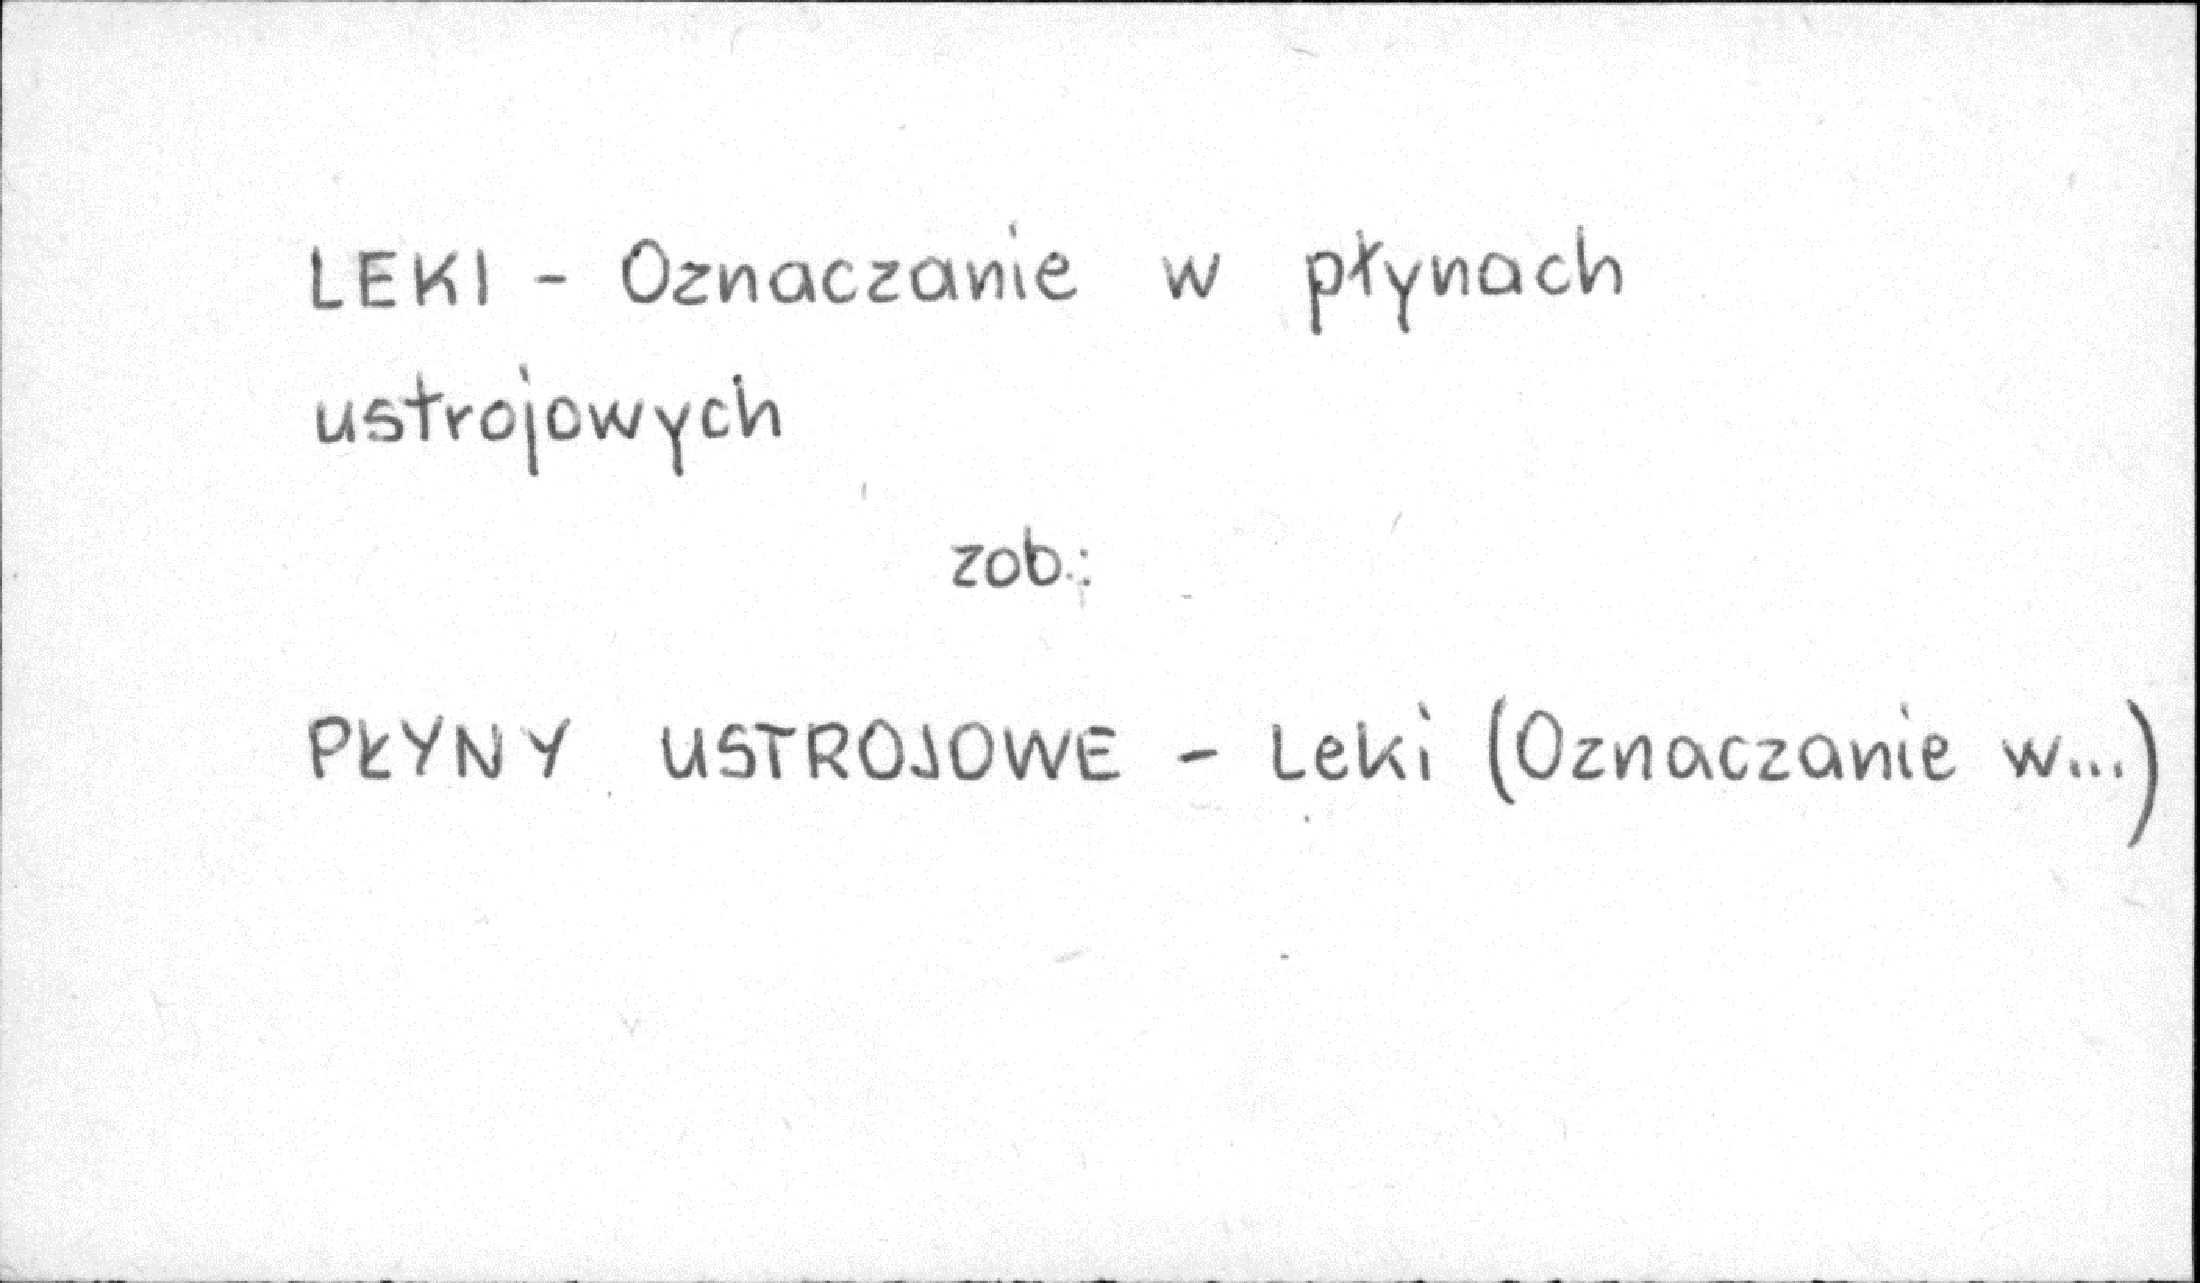 LEKI - Oznaczanie w płynach
ustrojowych
zob.:
PŁYNY USTROJOWE - Leki (Oznaczanie w...)